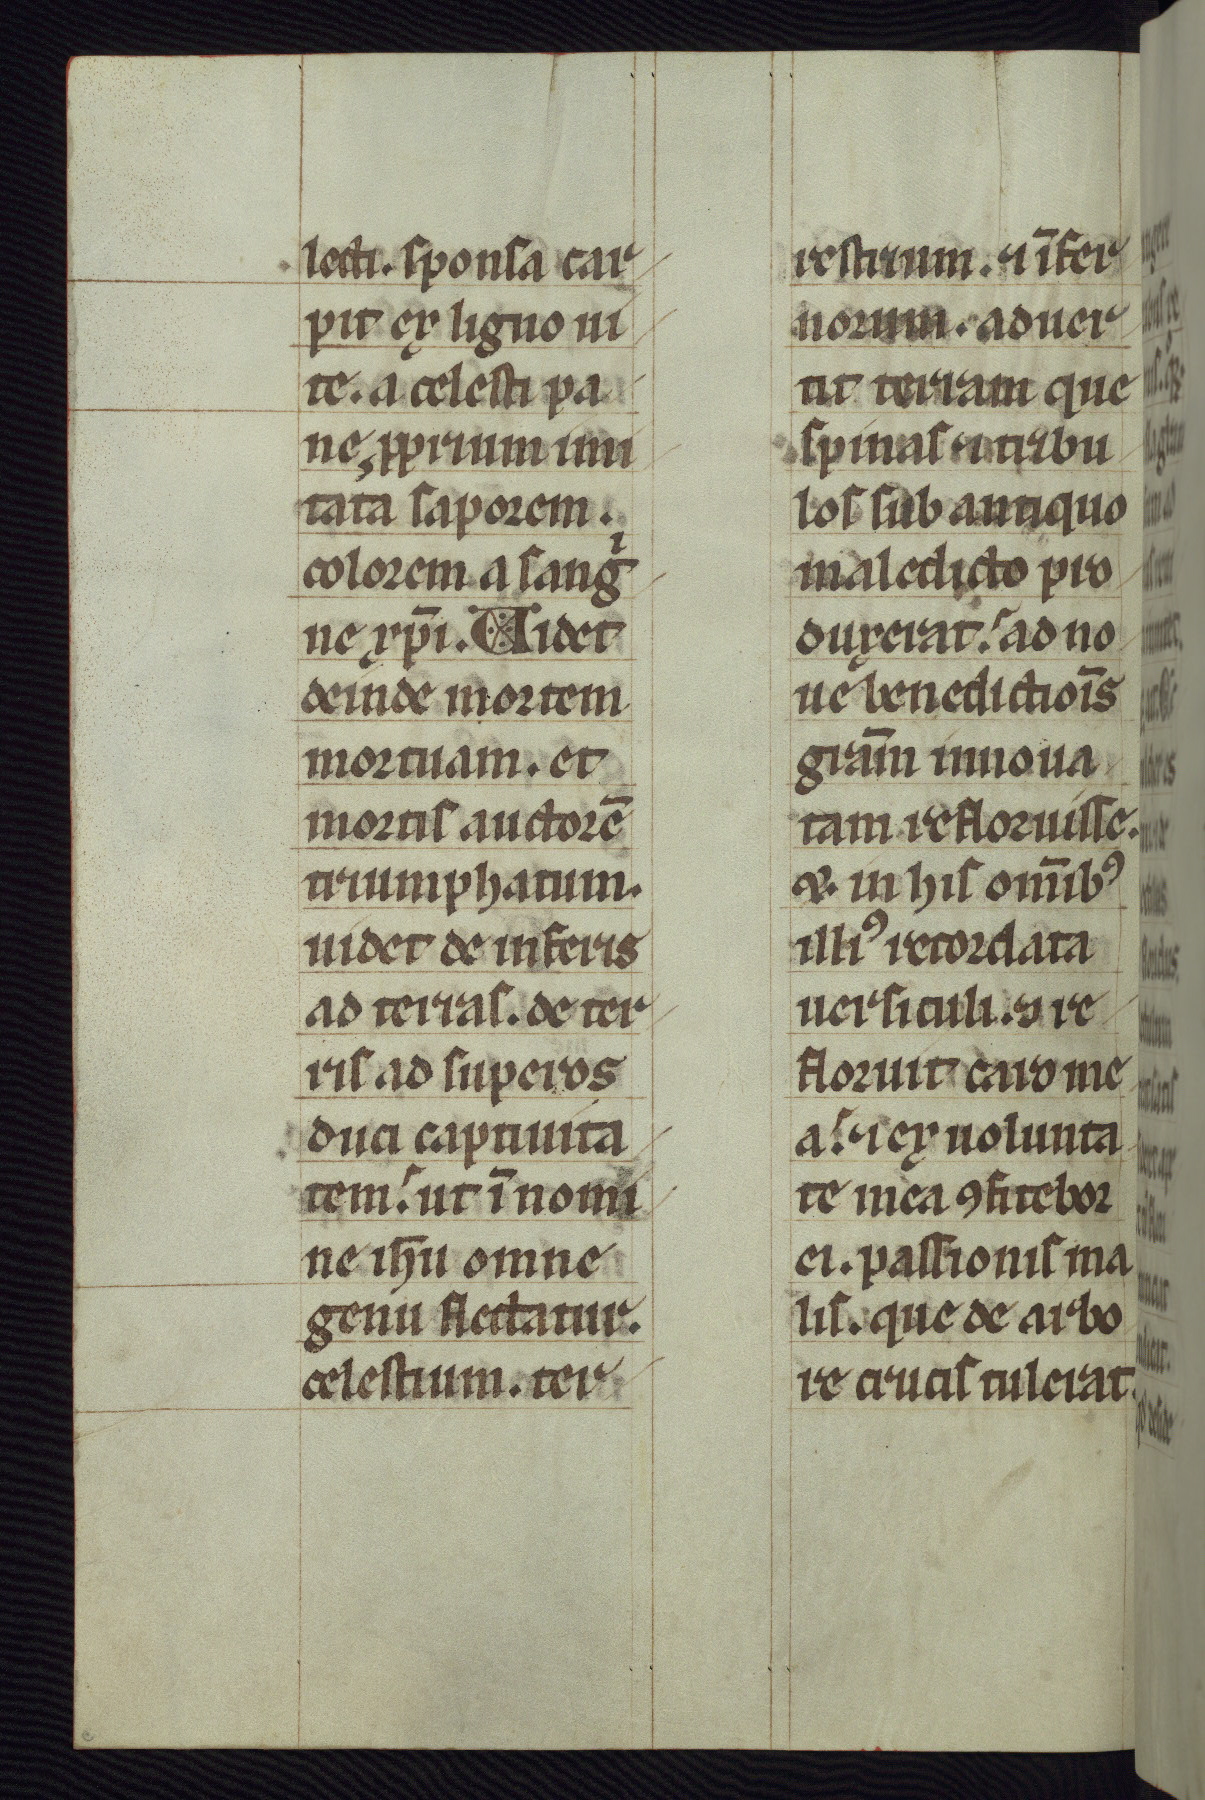 lecti. sponsa car
pit ex ligno ui
te. a celesti pa
ne ꝓprium imi
tata saporem.
colorem a sangͥ
ne xp̄i. Uidet
deinde mortem
mortuam. et
mortis auctorē
triumphatum.
uidet de inferis
ad terras. de ter
ris ad superos
duci captiuita
tem. ut ī nomi
ne ih̄u omne
genu flectatur.
celestium. ter
restrium. ⁊ īfer
norum. aduer
tit terram que
spinas ⁊ tribu
los sub antiquo
maledicto pro
duxerat. ad no
ue benedictiōis
grām innoua
tam refloruisse.
&. in his om̄ibꝰ
illiꝰ recordata
uersiculi. ⁊ re
floruit caro me
a. ⁊ ex uolunta
te mea ꝯfitebor
ei. passionis ma
lis. que de arbo
re crucis tulerat.